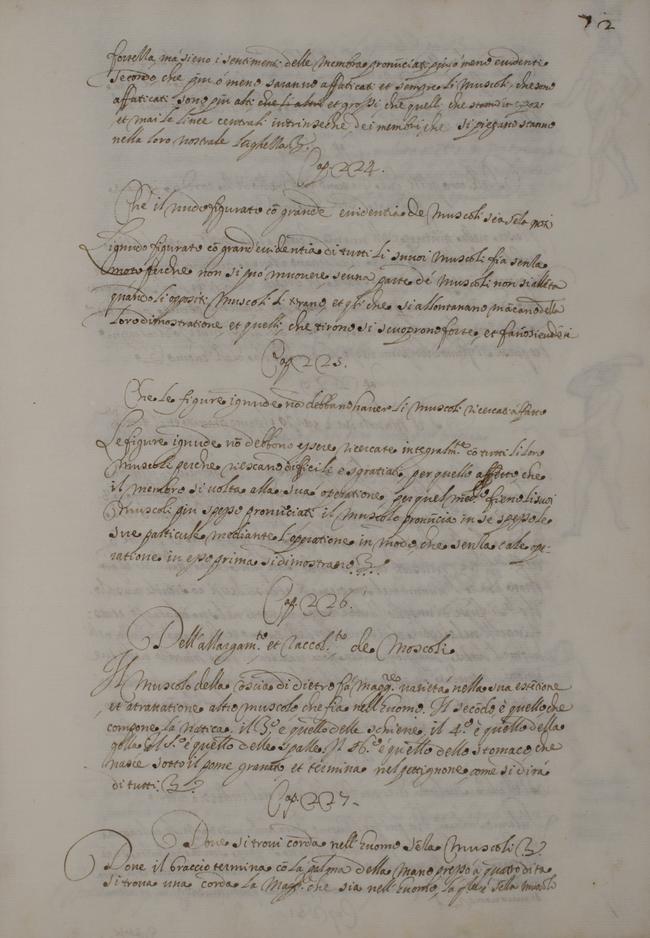 72
forzella, ma sieno i sentimenti delle membra pronunciati più o meno evidenti
secondo, che più o meno saranno affaticati et sempre li Muscoli, che sono
affaticati sono più alti che li altri et grossi che quelli che stanno in
et mai le linee centrali intrinseche, dei membri, che si piegano stanno
nella loro naturale
Cap. 224.
Che il nudo figurato cō grande evidentia de Muscoli sia sēza moti
L'ignudo figurato cō grand'evidentia di tutti li suoi Muscoli fia senza
moto perche non si può muovere se una parte de Muscoli non si allēta
quando li oppositi Muscoli li tirano, et quelli che si allontanano, mācano della
loro dimostratione, et quelli, che tirono si scuoprono forte, et fanosi evidēti
Cap. 225.
Che le figure ignude nō debbano haver li Muscoli ricercati affatto
Le figure ignude nō debbono essere ricercate integralm.te cō tutti li loro
Muscoli perche riescano difficili e sgratiati per quello aspetto, che
il membro si volta alla sua operatione per quel medesimo fieno li suoi
Muscoli più spesso pronunciati il muscolo pronūcia in se spesso le
sue particule mediante l'operatione in modo, che senza tale ope-
ratione in esso prima si dimostrano
Cap. 226.
Dell'allargam.to et raccol.to de Moscoli.
Il Muscolo della coscia di dietro fa magg.re varietà nella sua estētione
et atratatione altro muscolo che sia nell'huomo. Il secōdo è quello che
compone la natica. il 3.º è quello delle schiene, il 4.º è quello della
golla il 5.º è quello delle spalle. Il 6.º è quello dello stomaco che
nasce sotto il pome granato et termina nel pettignone come si dirà
di tutti.
Cap. 227.
Dove si trovi corda nell'huomo sēza Muscoli
Dove il braccio termina cō la palma della Mano presso à quatro dita
si trova una corda la Magg.re che sia nell'huomo, la quale sēza muscolo